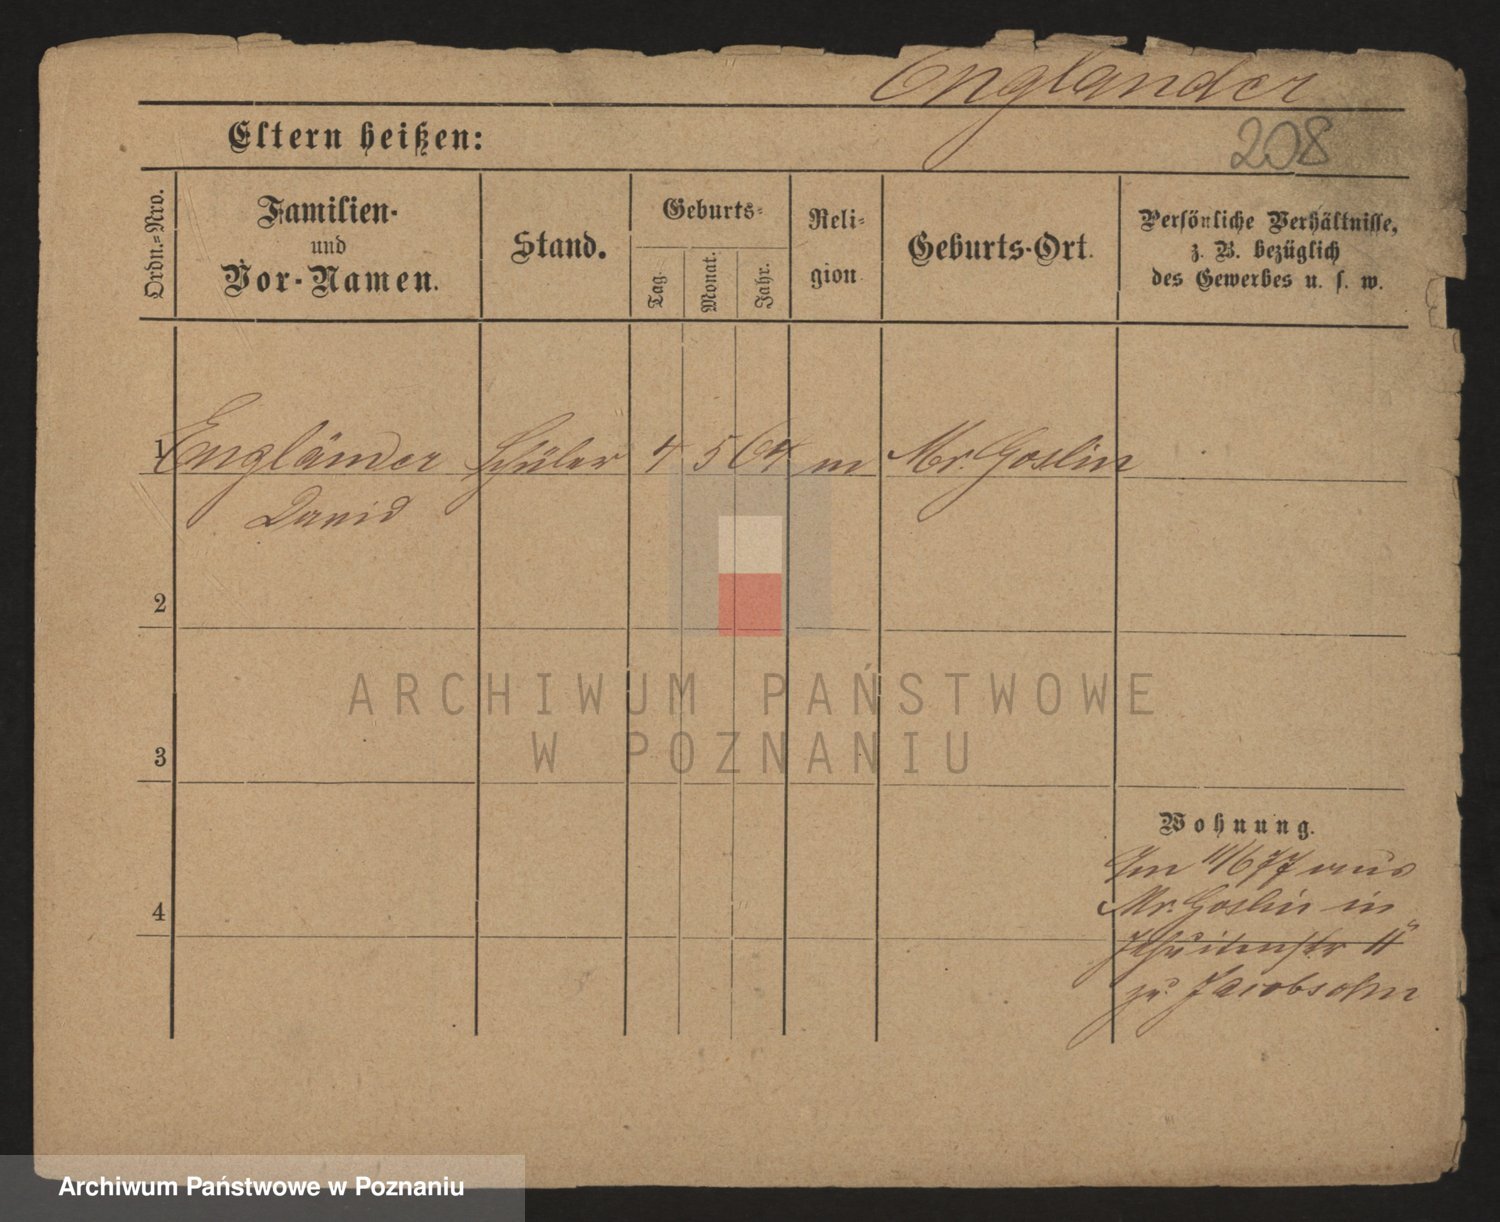 Engländer
Eltern heißen:
208
Ordn.-Nro.
Familien-
und
Vor-Namen.
Stand.
Geburts-
Tag.
Monat.
Jahr.
Reli-
gion
Geburts-Ort.
Persönliche Verhältnisse,
z. B. bezüglich
des Gewerbes u. s. w.
1 Engländer Schüler 4 5 64 m Mr. Goslin
David
2
ARCHIWUM PAŃSTWOWE
W POZNANIU
3
Wohnung.
Am 11/6 77 aus
4 Mr. Goslin in
Jesuitenstr 11
zu Jacobsohn
Archiwum Państwowe w Poznaniu